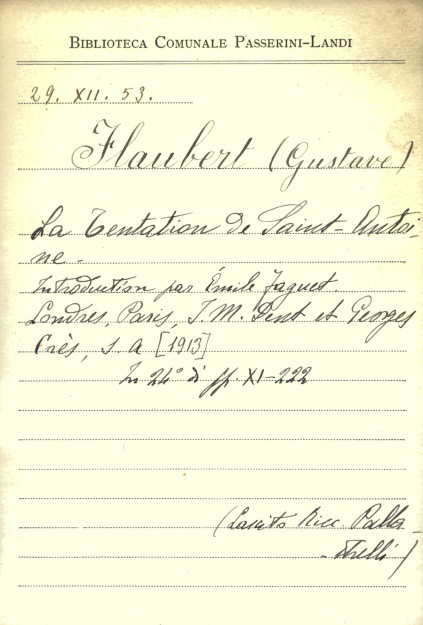 BIBLIOTECA COMUNALE PASSERINI-LANDI
29. XII. 53.
Flaubert (Gustave)
La Tentation de Saint-Antoi-
ne.
Introduction par Émile Faguet.
Londres, Paris, J. M. Dent et Georges
Crès, s. a [1913]
In 24° di pp. XI-222
(Lascito Ricc. Palla-
-strelli)